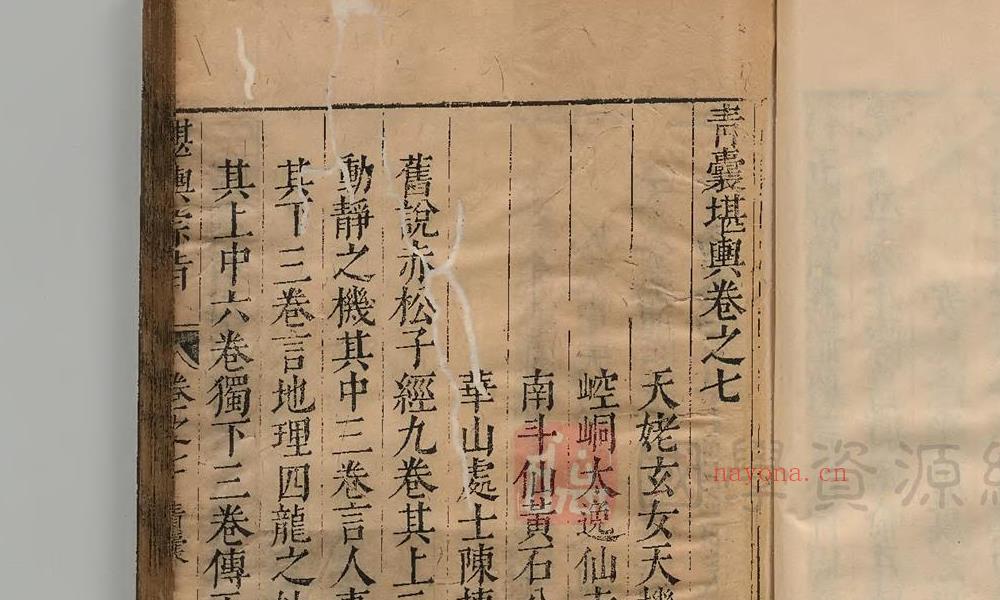 青囊堪輿卷之七
天姥玄女天機
崆峒大逸仙
南斗仙黃石公
華山處士陳摶
舊說赤松子經九卷其上三
動靜之機其中三卷言人事
其下三卷言地理四龍之
其上中六卷獨下三卷傳
堪輿宗旨 卷之七 青囊
國學資源
nayona.cn